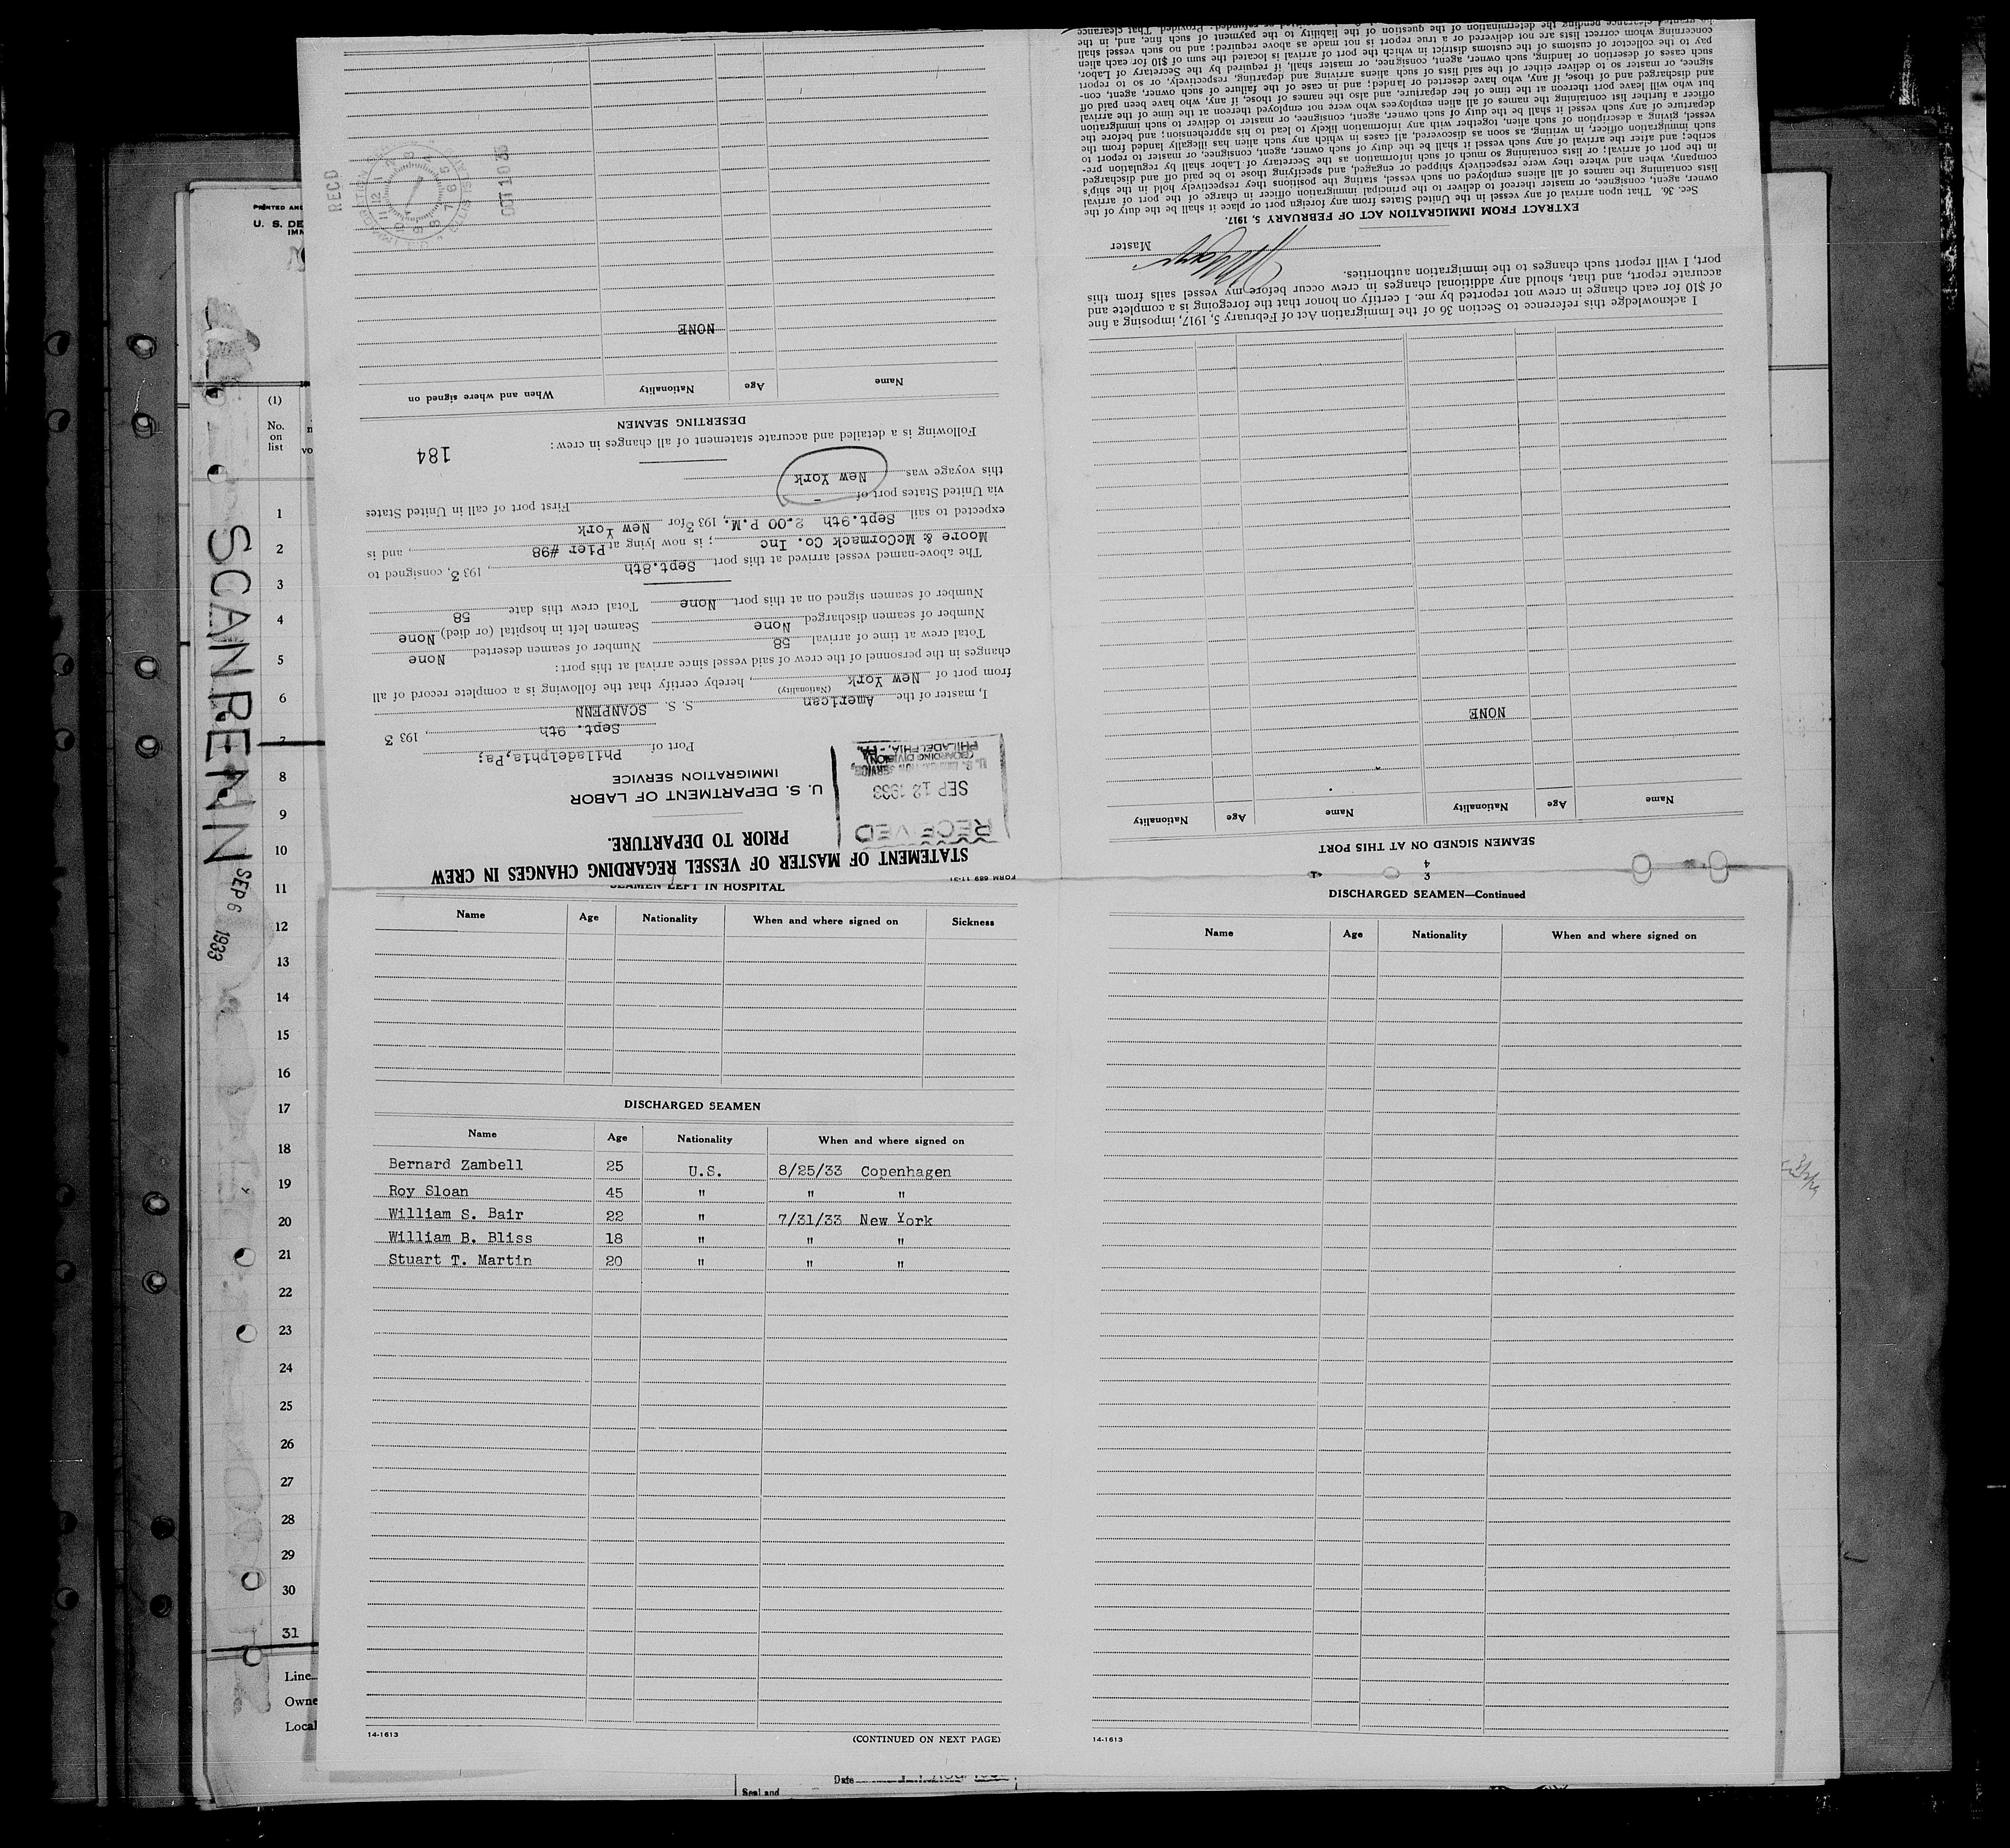 PRINTED AND
U. S. DE
IMM
(1)
No.
on
list
vo
1
2
3
4
5
6
7
8
9
10
11
12
13
14
15
16
17
18
19
20
21
22
23
24
25
26
27
28
29
30
31
Line
Owne
Local
SCANPENN SEP 6 1933
FORM 689 11-31
STATEMENT OF MASTER OF VESSEL REGARDING CHANGES IN CREW
PRIOR TO DEPARTURE.
U. S. DEPARTMENT OF LABOR
IMMIGRATION SERVICE
RECEIVED
SEP 12 1933
U. S. IMMIGRATION SERVICE,
(BOARDING DIVISION)
PHILADELPHIA, - PA.
Port of Philadelphia,Pa;
Sept. 9th, 193 3
I, master of the American S. S. SCANPENN
(Nationality)
from port of New York, hereby certify that the following is a complete record of all
changes in the personnel of the crew of said vessel since arrival at this port:
Total crew at time of arrival 58 Number of seamen deserted None
Number of seamen discharged None Seamen left in hospital (or died) None
Number of seamen signed on at this port None Total crew this date 58
The above-named vessel arrived at this port Sept.8th, 193 3, consigned to
Moore & McCormack Co. Inc ; is now lying at Pier #98, and is
expected to sail Sept.9th 2.00 P.M., 193 3 for New York
via United States port of - First port of call in United States
this voyage was New York
Following is a detailed and accurate statement of all changes in crew:
184
DESERTING SEAMEN
Name Age Nationality When and where signed on
NONE
RECD
OCT 10 33
3
4
SEAMEN SIGNED ON AT THIS PORT
Name Age Nationality Name Age Nationality
NONE
I acknowledge this reference to Section 36 of the Immigration Act of February 5, 1917, imposing a fine
of $10 for each change in crew not reported by me. I certify on honor that the foregoing is a complete and
accurate report, and that, should any additional changes in crew occur before my vessel sails from this
port, I will report such changes to the immigration authorities.
Master
EXTRACT FROM IMMIGRATION ACT OF FEBRUARY 5, 1917.
Sec. 36. That upon arrival of any vessel in the United States from any foreign port or place it shall be the duty of the
owner, agent, consignee, or master thereof to deliver to the principal immigration officer in charge of the port of arrival
lists containing the names of all aliens employed on such vessel, stating the positions they respectively hold in the ship's
company, when and where they were respectively shipped or engaged, and specifying those to be paid off and discharged
in the port of arrival; or lists containing so much of such information as the Secretary of Labor shall by regulation pre-
scribe; and after the arrival of any such vessel it shall be the duty of such owner, agent, consignee, or master to report to
such immigration officer, in writing, as soon as discovered, all cases in which any such alien has illegally landed from the
vessel, giving a description of such alien, together with any information likely to lead to his apprehension; and before the
departure of any such vessel it shall be the duty of such owner, agent, consignee, or master to deliver to such immigration
officer a further list containing the names of all alien employees who were not employed thereon at the time of the arrival
but who will leave port thereon at the time of her departure, and also the names of those, if any, who have been paid off
and discharged and of those, if any, who have deserted or landed; and in case of the failure of such owner, agent, con-
signee, or master so to deliver either of the said lists of such aliens arriving and departing, respectively, or so to report
such cases of desertion or landing, such owner, agent, consignee, or master shall, if required by the Secretary of Labor,
pay to the collector of customs of the customs district in which the port of arrival is located the sum of $10 for each alien
concerning whom correct lists are not delivered or a true report is not made as above required; and no such vessel shall
be granted clearance pending the determination of the question of the liability to the payment of such fine, and, in the
SEAMEN LEFT IN HOSPITAL
Name Age Nationality When and where signed on Sickness
DISCHARGED SEAMEN
Name Age Nationality When and where signed on
Bernard Zambell 25 U.S. 8/25/33 Copenhagen
Roy Sloan 45 " " "
William S. Bair 22 " 7/31/33 New York
William B. Bliss 18 " " "
Stuart T. Martin 20 " " "
14-1613
(CONTINUED ON NEXT PAGE)
DISCHARGED SEAMEN—Continued
Name Age Nationality When and where signed on
14-1613
Date
Seal and